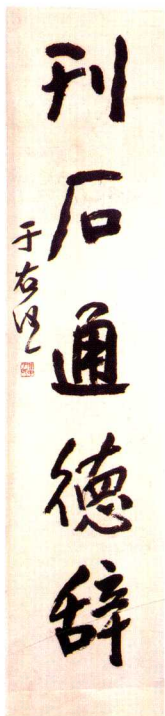 刊石通德辞
于右任